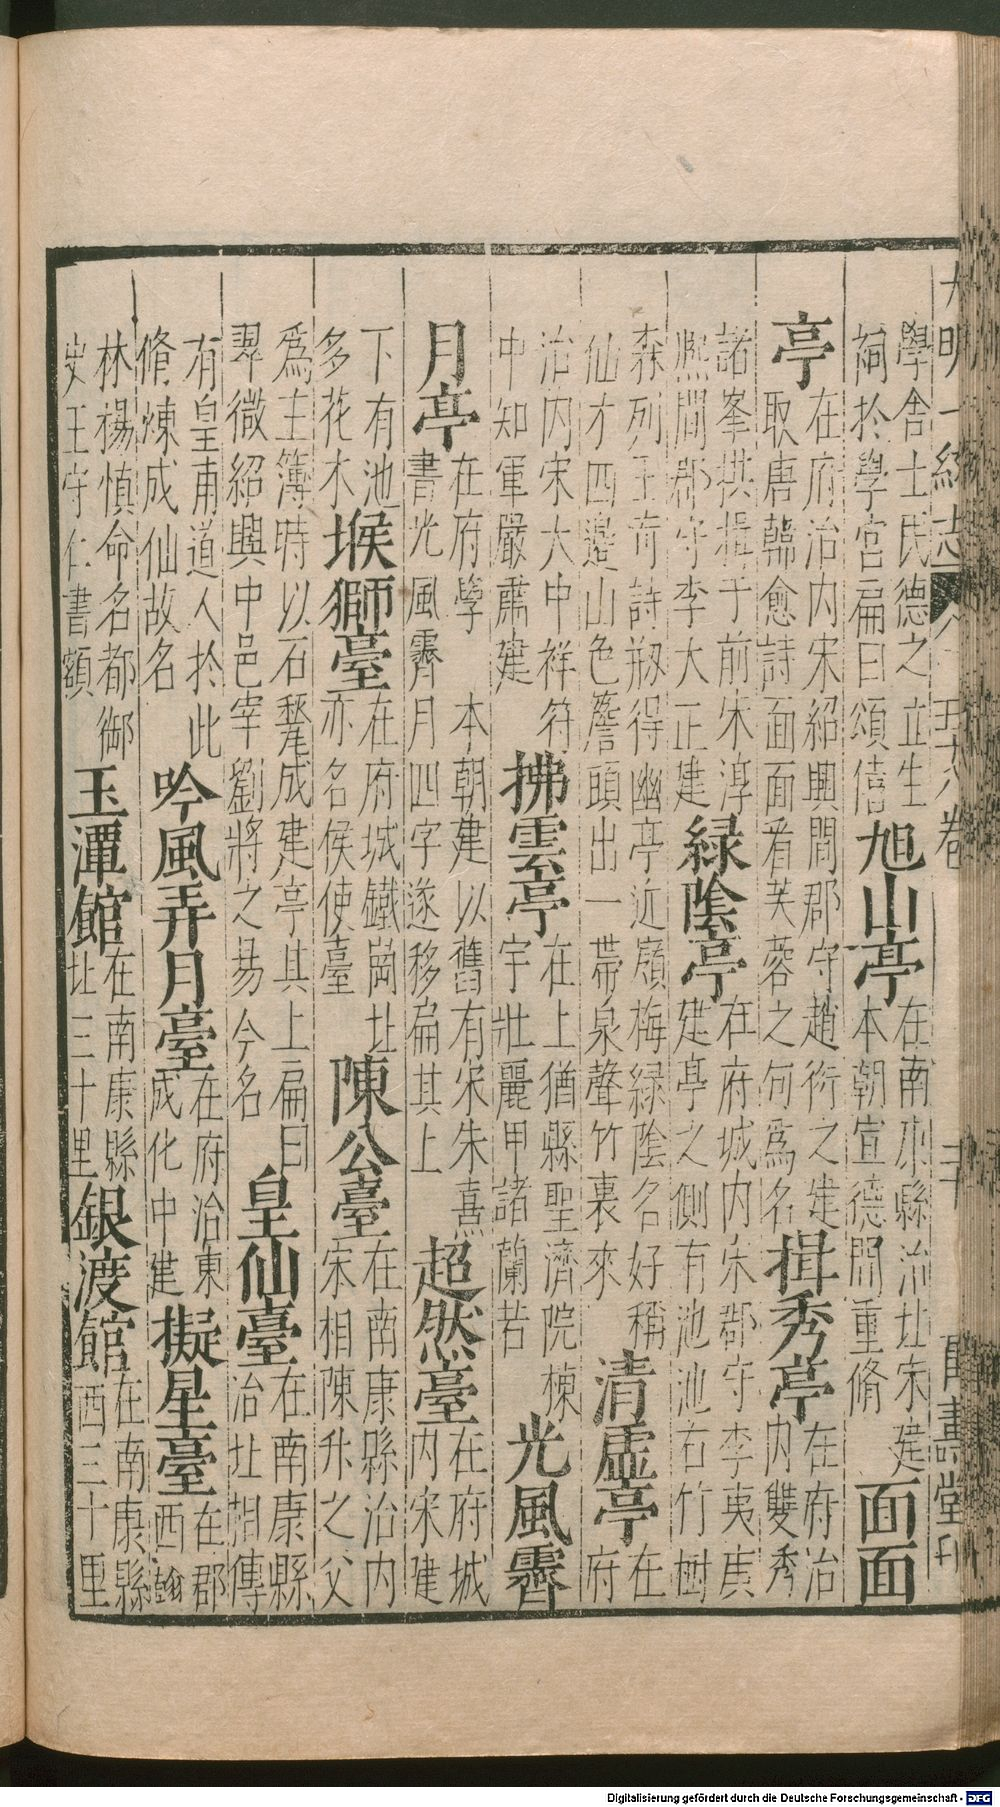 大明一統志 五十八卷 二十 歸壽堂刊
學舍士民德之立生祠於學宮扁曰頌僖 旭山亭 在南康縣治北宋建本朝宣德間重脩 面面
亭 在府治内宋紹興間郡守趙衍之建取唐韓愈詩面面看芙蓉之句爲名 揖秀亭 在府治内雙秀
諸峯拱揖于前宋淳熙間郡守李大正建 緑陰亭 在府城内宋郡守李夷庚建亭之側有池池右竹樹
森列王奇詩剏得幽亭近嶺梅緑陰名好稱仙才四邊山色簷頭出一帶泉聲竹裏來 清虛亭 在府
治内宋大中祥符中知軍嚴肅建 拂雲亭 在上猶縣聖濟院棟宇壯麗甲諸蘭若 光風霽
月亭 在府學 本朝建以舊有宋朱熹書光風霽月四字遂移扁其上 超然臺 在府城内宋建
下有池多花木 堠獅臺 在府城鐵崗北亦名侯使臺 陳公臺 在南康縣治内宋相陳升之父
爲主簿時以石甃成建亭其上扁曰翠微紹興中邑宰劉將之易今名 皇仙臺 在南康縣治北相傳
有皇甫道人於此脩煉成仙故名 吟風弄月臺 在府治東成化中建 擬星臺 在郡西翰
林楊慎命名都御史王守仁書額 玉潭館 在南康縣北三十里 銀渡館 在南康縣西三十里
Digitalisierung gefördert durch die Deutsche Forschungsgemeinschaft - DFG